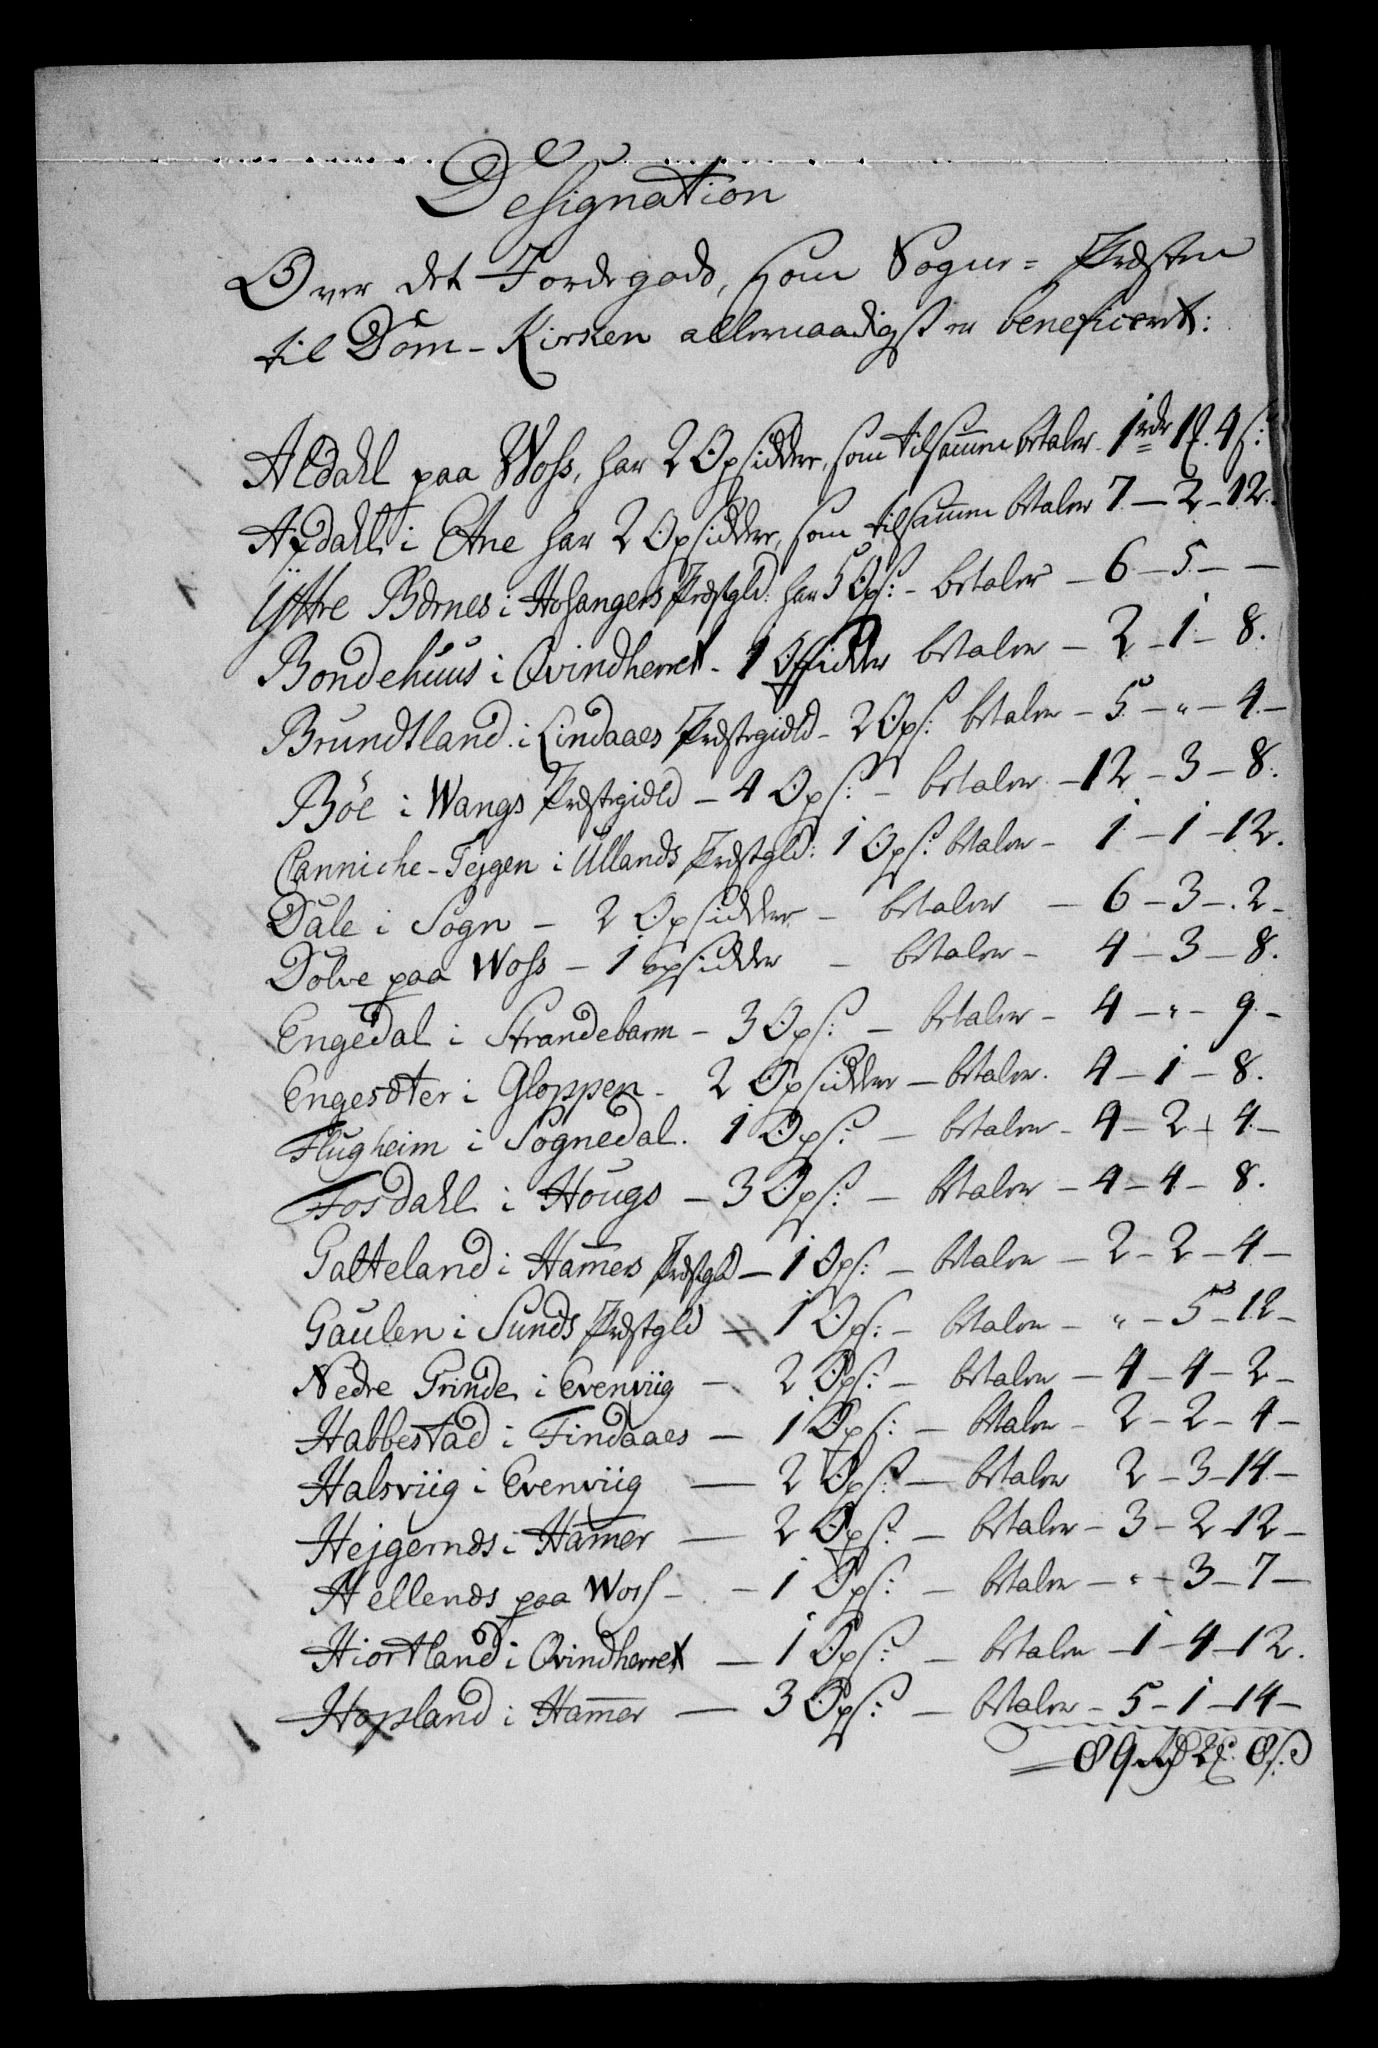 Designation
Over det Jordegods, som Sogne-Præsten
til Dom-Kirken allernaadigst er beneficert:
Aldahl paa Woss, har 2 Opsiddere, som tilsammen betaler 1 rdr 1 ℳ. 4 s:
Axdahl i Etne har 2 Opsiddere, som tilsammen betaler 7 — 2 - 12.
Yttre Børnes i Hosangers Præstgld: har 5 Ops: - betaler — 6 — 5 — —
Bondehuus i Qvindherret - 1 Opsidder betaler — 2 — 1 — 8.
Brundtland i Lindaaes Præstegield - 2 Ops: betaler — 5 — " — 4 —
Böe i Wangs Præstegield — 4 Ops: - betaler — 12 — 3 — 8.
Canniche-Tejgen i Ullands Præstgld: 1 Ops: betaler - 1 — 1 - 12.
Dale i Sogn — 2 Opsiddere - betaler — 6 — 3 — 2 -
Dolve paa Woss — 1 opsidder - betaler - 4 — 3 — 8.
Engedal i Strandebarm - 3 Ops: — betaler - 4 — " - 9 -
Engesæter i Gloppen - 2 Opsiddere — betaler. 4 — 1 — 8.
Flugheim i Sognedal. 1 Ops: — betaler - 4 — 2 — 4 —
Fosdahl i Hougs — 3 Ops: — betaler — 4 — 4 — 8.
Galteland i Hamers Præstgld — 1 Ops: — betaler — 2 — 2 — 4 —
Gaulen i Sunds Præstgld — 1 Ops: — betaler — " — 5 — 12 -
Nedre Grinde i Evenviig — 2 Ops: — betaler — 4 — 4 — 2 -
Habbestad i Findaaes — 1 Ops: — betaler — 2 — 2 — 4 —
Halsviig i Evenviig — 2 Ops: — betaler 2 — 3 — 14 —
Hejgernes i Hamer — 2 Ops: — betaler — 3 — 2 - 12 —
Hellenes paa Woss - - 1 Ops: — betaler — " — 3 — 7 —
Hiortland i Qvindherret — 1 Ops: — betaler — 1 — 4 — 12.
Hopland i Hamer — 3 Ops: — betaler — 5 — 1 — 14 —
89 rd 2 ℳ. 8 s: